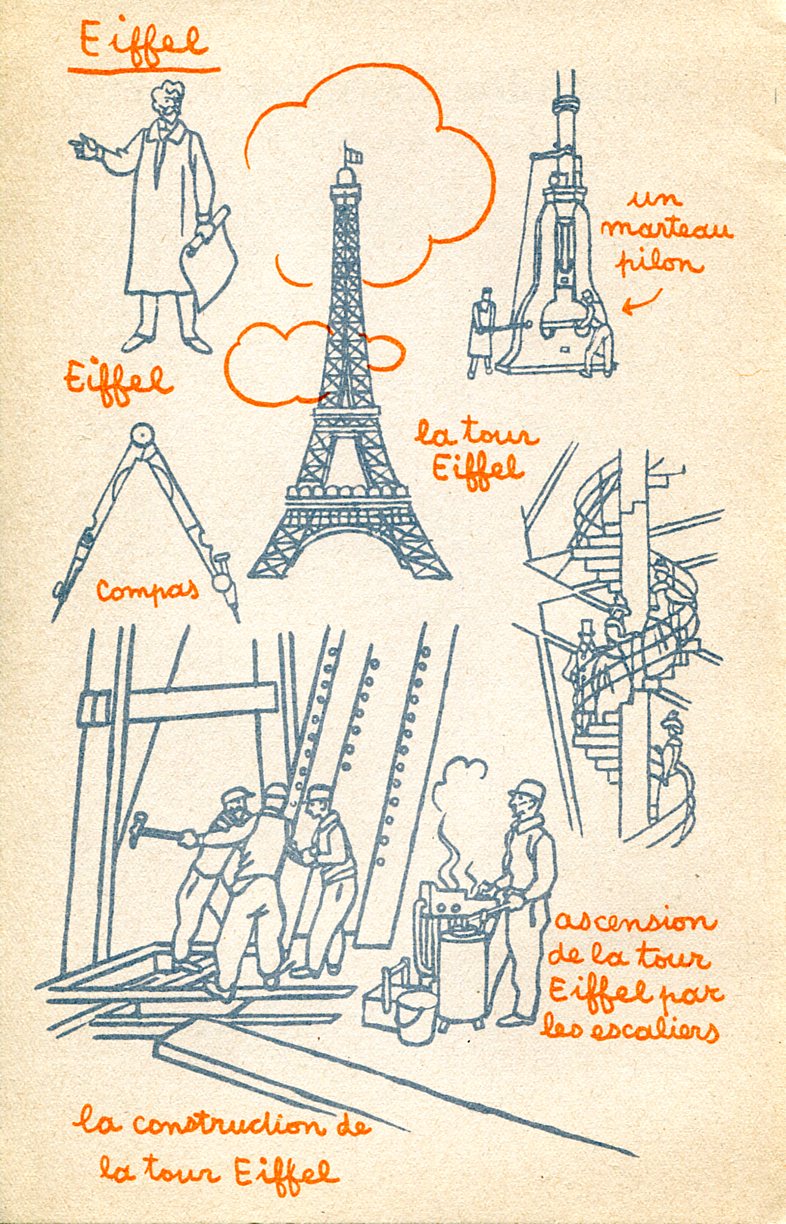 Eiffel
Eiffel
un
marteau
pilon
la tour
Eiffel
compas
ascension
de la tour
Eiffel par
les escaliers
la construction de
la tour Eiffel